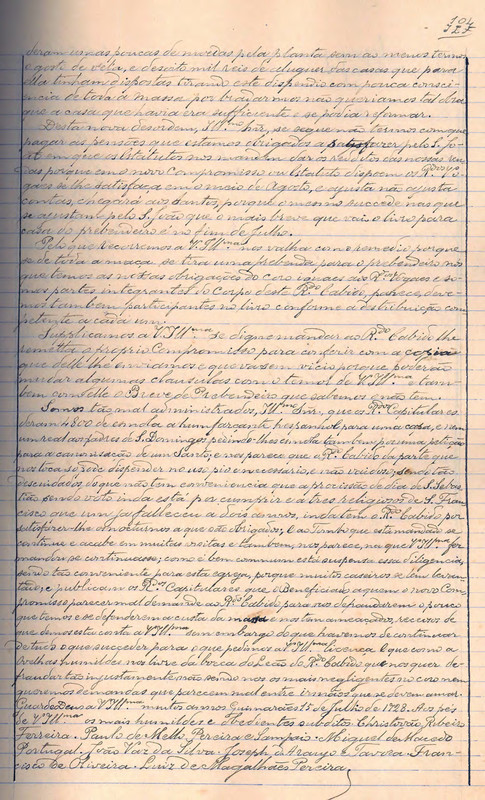 104
deram umas poucas de moedas pela planta sem ao menos termos
o gosto de vêla, e desoito mil reis de aluguer das casas que para
ella tinham dispostas tirando este dispendio com pouca consci-
encia de toda a massa por bradarmos não queriamos tal obra
que a casa que havia era sufficiente e se podia reformar.
Desta nova desordem, Ill.mo Snr, se segue não termos com que
pagar as pensões que estamos obrigados a satisfazer pelo S. Jo-
ão em que os Estatutos nos mandam dar os reditos das nossas
porque em o novo Compromisso ou Estatuto dispoem os
se lhe satisfaça em o mez de Agosto, e ajusta não ajusta
contas, chegará aos Santos, porque o mesmo succede nas que
se ajustam pelo S. João que o mais breve que vai o livro para
casa do prebendeiro é no fim de julho.
Pelo que recorremos a V. Ill.ma nos valha com o remedio porque
se de toda a maça se tira uma prebenda para o prebendeiro nós
que temos as mesmas obrigações do coro iguaes aos R.dos e so-
mos partes integrantes do Corpo deste R.do Cabido, parece, deve-
mos tambem participantes no livro conforme a distribuição com-
petente a cada um.
Supplicamos a V. Ill.ma se digne mandar ao R.do Cabido lhe
remetta o proprio Compromisso para conferir com a copia
que delle lhe enviamos e que vá sem vicio porque poderão
mudar algumas clausulas com o temor de V. Ill.ma e tam-
bem com elle o Breve de Prebendeiro que sabemos o não tem.
Somos tão mal administrados, Ill.mo Snr., que os Capitulares
deram 4800 de esmola a um farçante hespanhol para uma casa, e nem
um real aos padres de S. Domingos pedindo-lhes esmola tambem por uma petição
para a canonisação de um Santo, e nos parece que o R.do Cabido da parte que
nos toca só pode dispender no uso pio e necessario, e não vicioso; sendo tão
descuidados do que não tem conveniencia que a procissão de dia de S. Sebas-
tião sendo voto inda está por cumprir e a tres religiosos de S. Fran-
cisco que um já falleceu a dois annos, inda tem o R.do Cabido por
satisfazer-lhe os nocturnos a que são obrigados; e ao Tombo que está mandado se
continue e acabe em muitas visitas e tambem, nos parece, na que V. Ill.ma fez
mandou se continuasse; como é bem commum está suspensa essa diligencia
sendo tão conveniente para esta egreja, porque muitos caseiros se tem levan-
tado; e publicam os R.dos Capitulares que o Beneficiado que o novo Com-
promisso parecer mal demande ao R.do Cabido para nos defraudarem o pouco
que temos e se defenderem a custa da massa e nos tem ameaçados, receosos de
que demos esta conta a V. Ill.ma sem embargo do que havemos de continuar
de tudo o que succeder para o que pedimos a V. Ill.ma licença e que como a
ovelhas humildes nos livre da boca do Leão do R.do Cabido que nos quer de-
fraudar tão injustamente não sendo nós os mais negligentes no coro nem
queremos demandas que parecem mal entre irmãos que se devem amar.
Guarde Deus a V. Ill.ma muitos annos Guimarães 15 de Julho de 1728. Aos pés
de V. Ill.ma os mais humildes e obedientes subditos. Christovão Ribeiro
Ferreira. Paulo de Mello Pereira e Sampaio. Miguel de Macedo
Portugal. João Vaz da Silva. Joseph de Araujo e Tavora. Fran-
cisco de Oliveira. Luiz de Magalhães Pereira